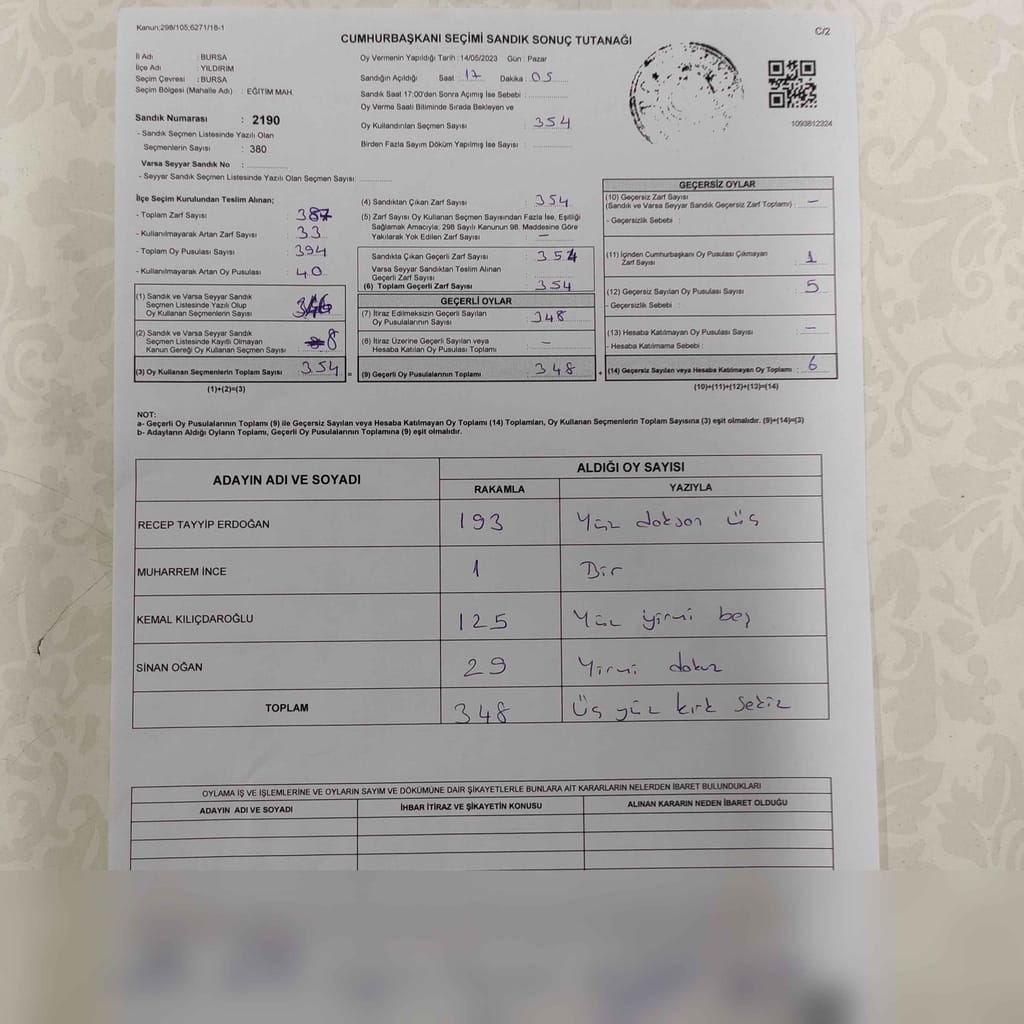 Kanun:298/105,6271/18-1
C/2
CUMHURBAŞKANI SEÇİMİ SANDIK SONUÇ TUTANAĞI
İl Adı : BURSA
İlçe Adı : YILDIRIM
Seçim Çevresi : BURSA
Seçim Bölgesi (Mahalle Adı) : EĞİTİM MAH.
Sandık Numarası : 2190
- Sandık Seçmen Listesinde Yazılı Olan
Seçmenlerin Sayısı : 380
Varsa Seyyar Sandık No :
- Seyyar Sandık Seçmen Listesinde Yazılı Olan Seçmen Sayısı:
Oy Vermenin Yapıldığı Tarih :14/05/2023 Gün : Pazar
Sandığın Açıldığı Saat : 17 Dakika : 05
Sandık Saat 17:00'den Sonra Açımış İse Sebebi :
Oy Verme Saati Bitiminde Sırada Bekleyen ve
Oy Kullandırılan Seçmen Sayısı : 354
Birden Fazla Sayım Döküm Yapılmış İse Sayısı :
1093812324
İlçe Seçim Kurulundan Teslim Alınan;
- Toplam Zarf Sayısı : 387
- Kullanılmayarak Artan Zarf Sayısı : 33
- Toplam Oy Pusulası Sayısı : 394
- Kullanılmayarak Artan Oy Pusulası : 40
(1) Sandık ve Varsa Seyyar Sandık
Seçmen Listesinde Yazılı Olup
Oy Kullanan Seçmenlerin Sayısı : 346
(2) Sandık ve Varsa Seyyar Sandık
Seçmen Listesinde Kayıtlı Olmayan
Kanun Gereği Oy Kullanan Seçmen Sayısı : 8
(3) Oy Kullanan Seçmenlerin Toplam Sayısı : 354 =
(1)+(2)=(3)
(4) Sandıktan Çıkan Zarf Sayısı : 354
(5) Zarf Sayısı Oy Kullanan Seçmen Sayısından Fazla İse, Eşitliği
Sağlamak Amacıyla; 298 Sayılı Kanunun 98. Maddesine Göre
Yakılarak Yok Edilen Zarf Sayısı : –
Sandıkta Çıkan Geçerli Zarf Sayısı : 354
Varsa Seyyar Sandıktan Teslim Alınan
Geçerli Zarf Sayısı :
(6) Toplam Geçerli Zarf Sayısı : 354
GEÇERLİ OYLAR
(7) İtiraz Edilmeksizin Geçerli Sayılan
Oy Pusulalarının Sayısı : 348
(8) İtiraz Üzerine Geçerli Sayılan veya
Hesaba Katılan Oy Pusulası Toplamı : –
(9) Geçerli Oy Pusulalarının Toplamı : 348 +
GEÇERSİZ OYLAR
(10) Geçersiz Zarf Sayısı
(Sandık ve Varsa Seyyar Sandık Geçersiz Zarf Toplamı) : –
- Geçersizlik Sebebi :
(11) İçinden Cumhurbaşkanı Oy Pusulası Çıkmayan
Zarf Sayısı : 1
(12) Geçersiz Sayılan Oy Pusulası Sayısı : 5
- Geçersizlik Sebebi :
(13) Hesaba Katılmayan Oy Pusulası Sayısı : –
- Hesaba Katılmama Sebebi :
(14) Geçersiz Sayılan veya Hesaba Katılmayan Oy Toplamı : 6
(10)+(11)+(12)+(13)=(14)
NOT:
a- Geçerli Oy Pusulalarının Toplamı (9) ile Geçersiz Sayılan veya Hesaba Katılmayan Oy Toplamı (14) Toplamları, Oy Kullanan Seçmenlerin Toplam Sayısına (3) eşit olmalıdır. (9)+(14)=(3)
b- Adayların Aldığı Oyların Toplamı, Geçerli Oy Pusulalarının Toplamına (9) eşit olmalıdır.
ADAYIN ADI VE SOYADI
ALDIĞI OY SAYISI
RAKAMLA YAZIYLA
RECEP TAYYİP ERDOĞAN 193 Yüz doksan üç
MUHARREM İNCE 1 Bir
KEMAL KILIÇDAROĞLU 125 Yüz yirmi beş
SİNAN OĞAN 29 Yirmi dokuz
TOPLAM 348 Üç yüz kırk sekiz
OYLAMA İŞ VE İŞLEMLERİNE VE OYLARIN SAYIM VE DÖKÜMÜNE DAİR ŞİKAYETLERLE BUNLARA AİT KARARLARIN NELERDEN İBARET BULUNDUKLARI
ADAYIN ADI VE SOYADI İHBAR İTİRAZ VE ŞİKAYETİN KONUSU ALINAN KARARIN NEDEN İBARET OLDUĞU